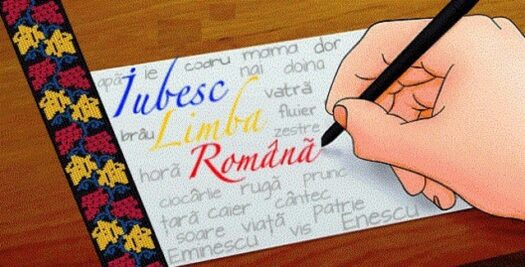 apă ie codru mama dor
nai doina
Iubesc
vatră
Limba
fluier
brâu
zestre
Română
horă
ciocârlie rugă prunc
țară caier cântec
soare viață patrie
Eminescu vis Enescu